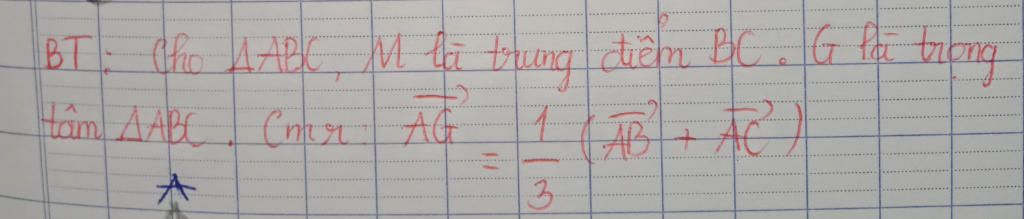 BT: Cho ΔABC, M là trung điểm BC. G là trọng
tâm ΔABC. Cmr: $\overrightarrow{AG} = \frac{1}{3} (\overrightarrow{AB} + \overrightarrow{AC})$
A